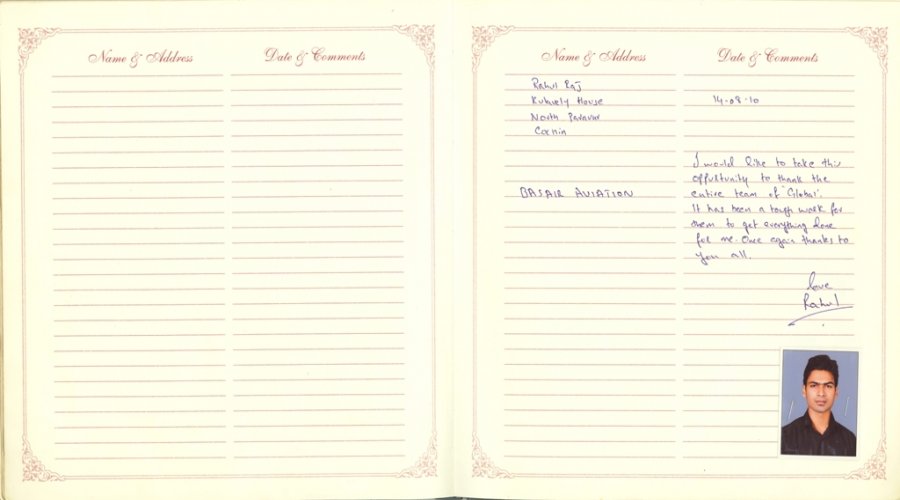 Name & Address
Date & Comments
Name & Address
Date & Comments
Rahul Raj
House
North Paravur
Cochin
BASAIR AVIATION
14-08-10
I would like to take this
oppurtunity to thank the
entire team of "Global".
It has been a tough work for
them to get everything done
for me. Once again thanks to
you all.
love
Rahul